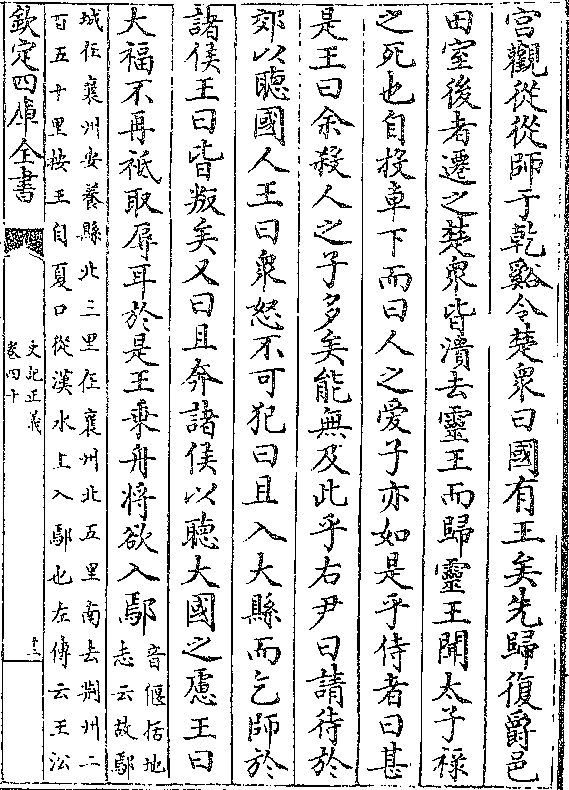 宫觀從從師于乾谿令楚衆曰國有王矣先歸復爵邑
田室後者遷之楚衆皆潰去靈王而歸靈王聞太子祿
之死也自投車下而曰人之愛子亦如是乎侍者曰甚
是王曰余殺人之子多矣能無及此乎右尹曰請待於
郊以聽國人王曰衆怒不可犯曰且入大縣而乞師於
諸侯王曰皆叛矣又曰且奔諸侯以聽大國之慮王曰
大福不再祗取辱耳於是王乘舟將欲入鄢
音偃括地
志云故鄢
城在襄州安養縣北三里在襄州北五里南去荆州二
百五十里按王自夏口從漢水上入鄢也左傳云王沿
欽定四庫全書
史記正義
卷四十